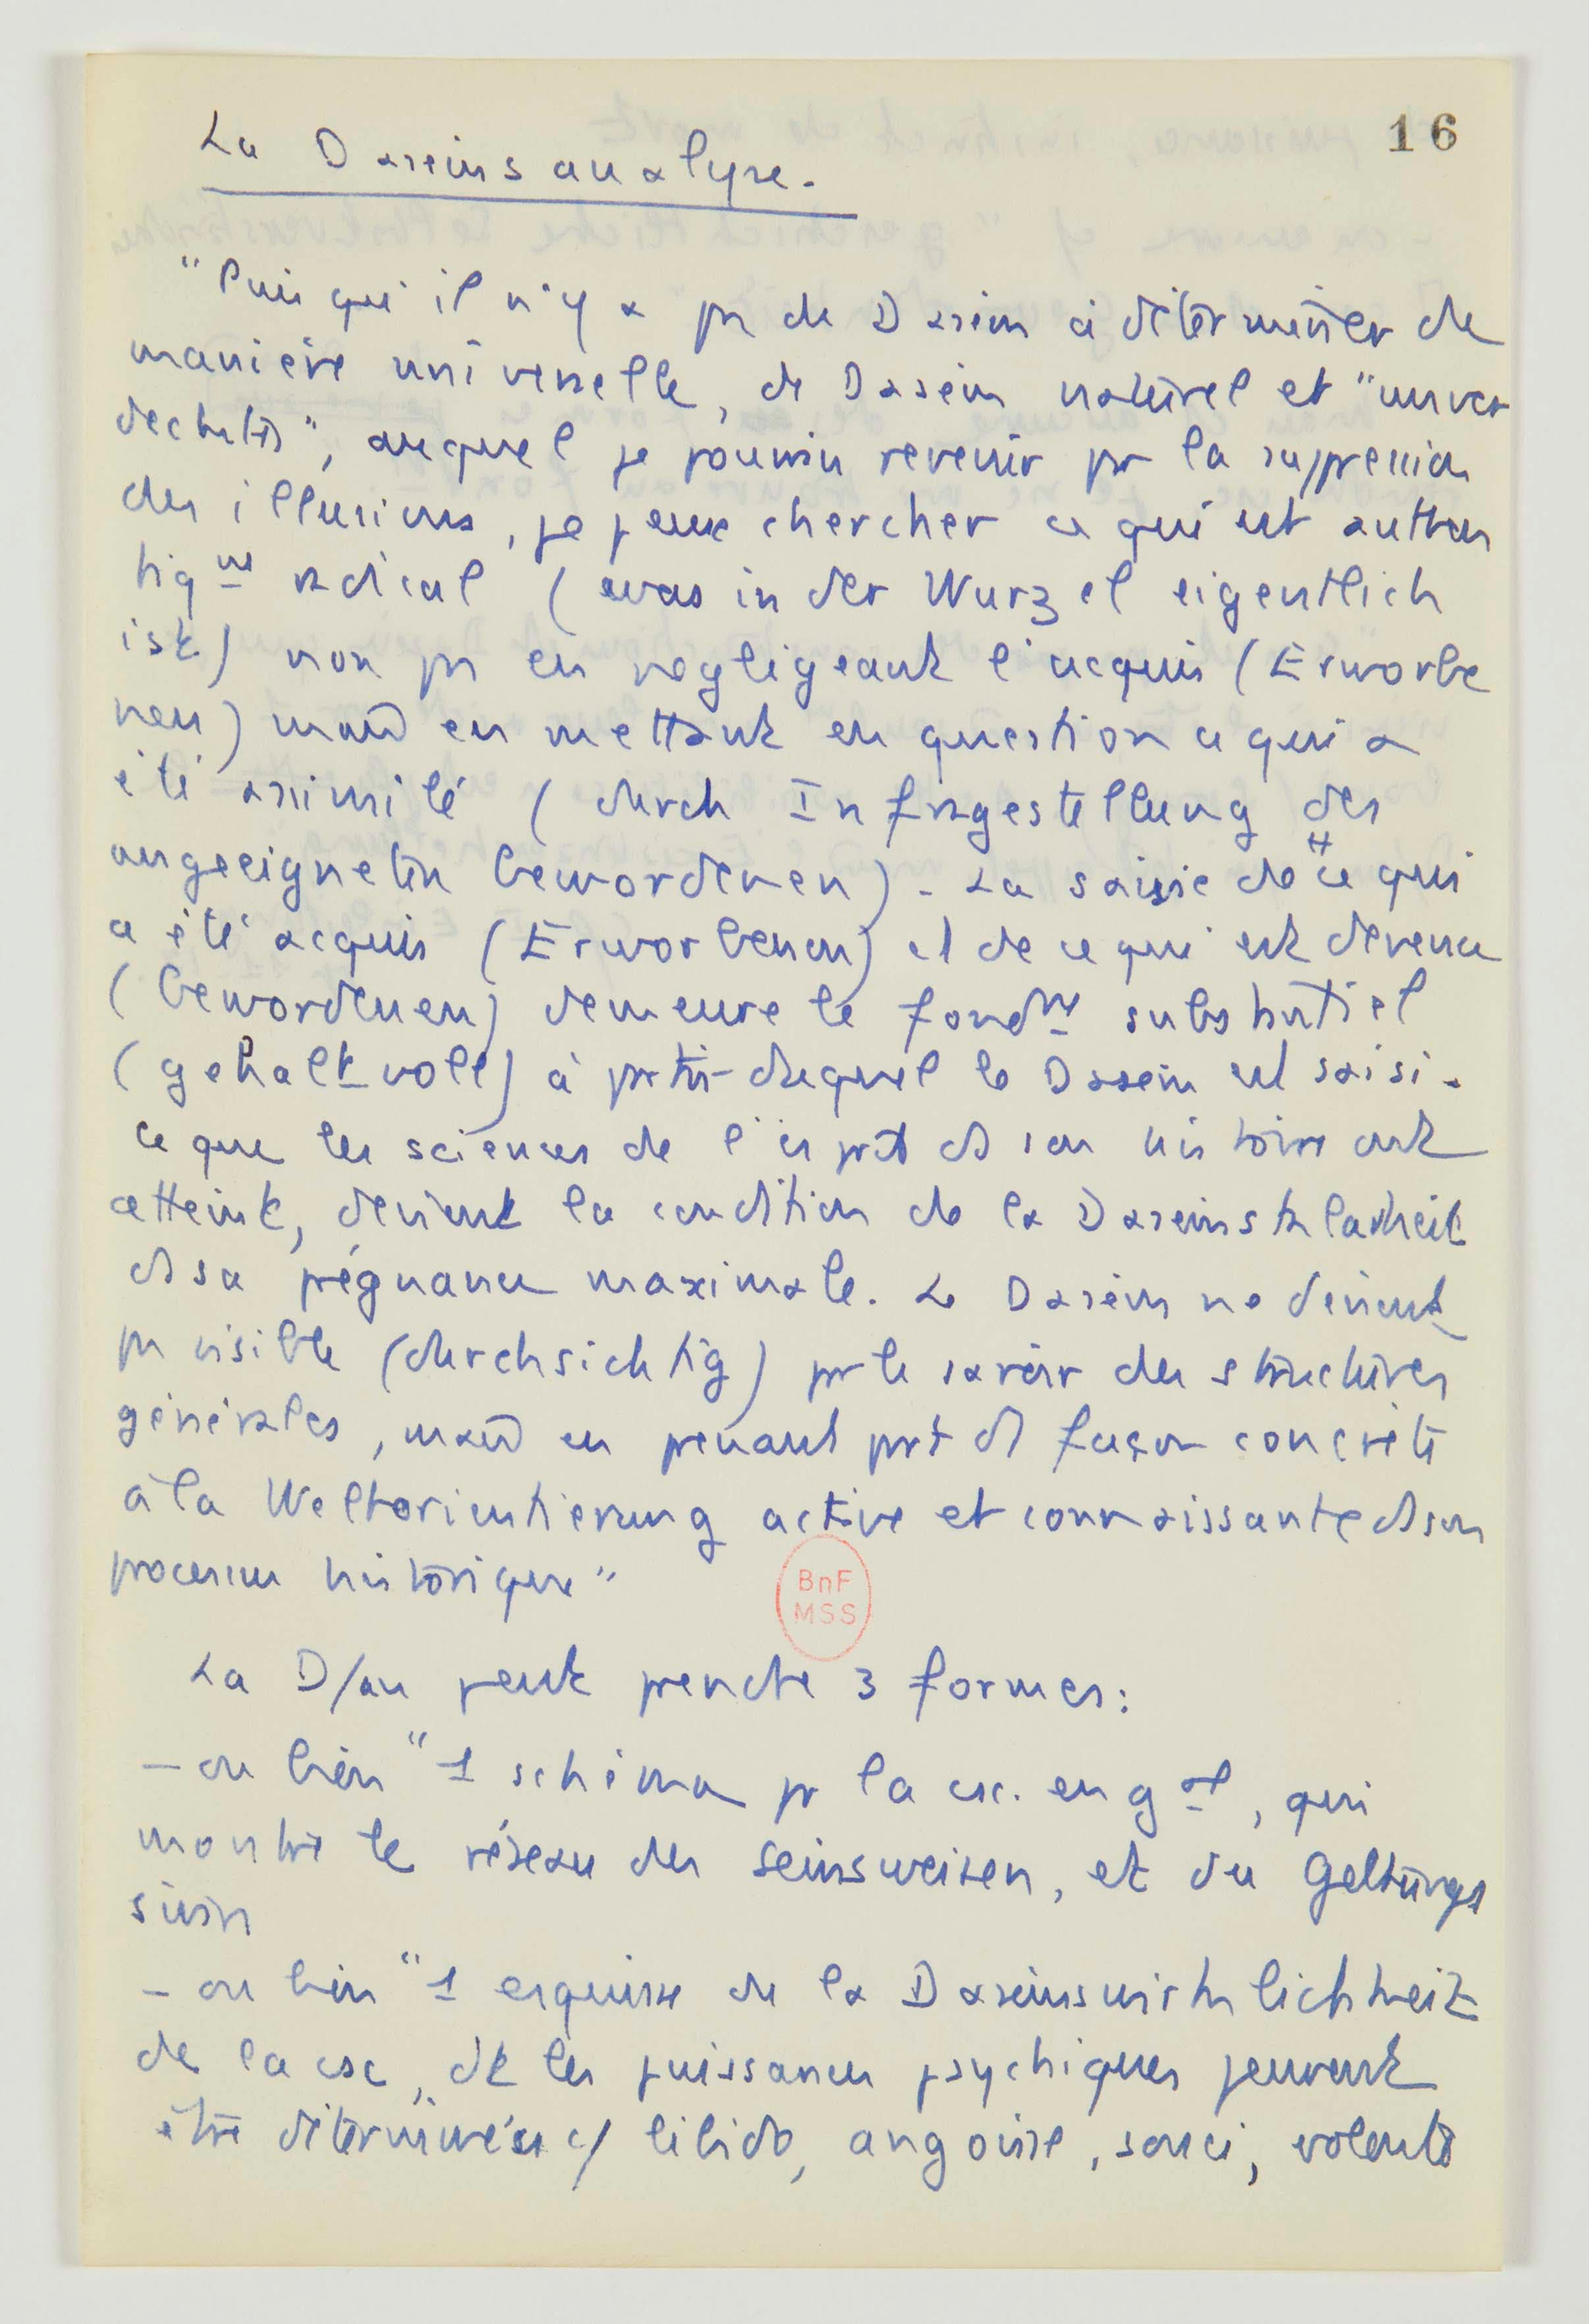 16
La Daseinsanalyse.
"Puisqu'il n'y a pas de Dasein à déterminer de
manière universelle, de Dasein naturel et "unver
deckter", auquel je pourrais revenir par la suppression
des illusions, je peux chercher ce qui est authen
tiqnt radical (was in der Wurzel eigentlich
ist) non pas en négligeant l'acquis (Erworbe
nen) mais en mettant en question ce qui a
été assimilé (durch Infragestellung des
angeeigneten Gewordenen). La saisie de ce qui
a été acquis (Erworbenen) et de ce qui est devenu
(Gewordenen) demeure le fondnt substantiel
(gehaltvoll) à partir duquel le Dasein est saisi.
Ce que les sciences de l'esprit et son histoire ont
atteint, devient la condition de la Daseinsklarheit
ds sa prégnance maximale. Le Dasein ne devient
pas visible (durchsichtig) par le savoir des structures
générales, mais en prenant part de façon concrète
à la Weltorientierung active et connaissante ds son
processus historique"
BnF
MSS
La D/an peut prendre 3 formes:
- ou bien "1 schéma pr la csc. en gal, qui
montre le réseau des Seinsweisen, et du Geltungs
sinn
- ou bien "1 esquisse de la Daseinswirklichkeit
de la csc, dt les puissances psychiques peuvent
être déterminées c/ libido, angoisse, souci, volonté